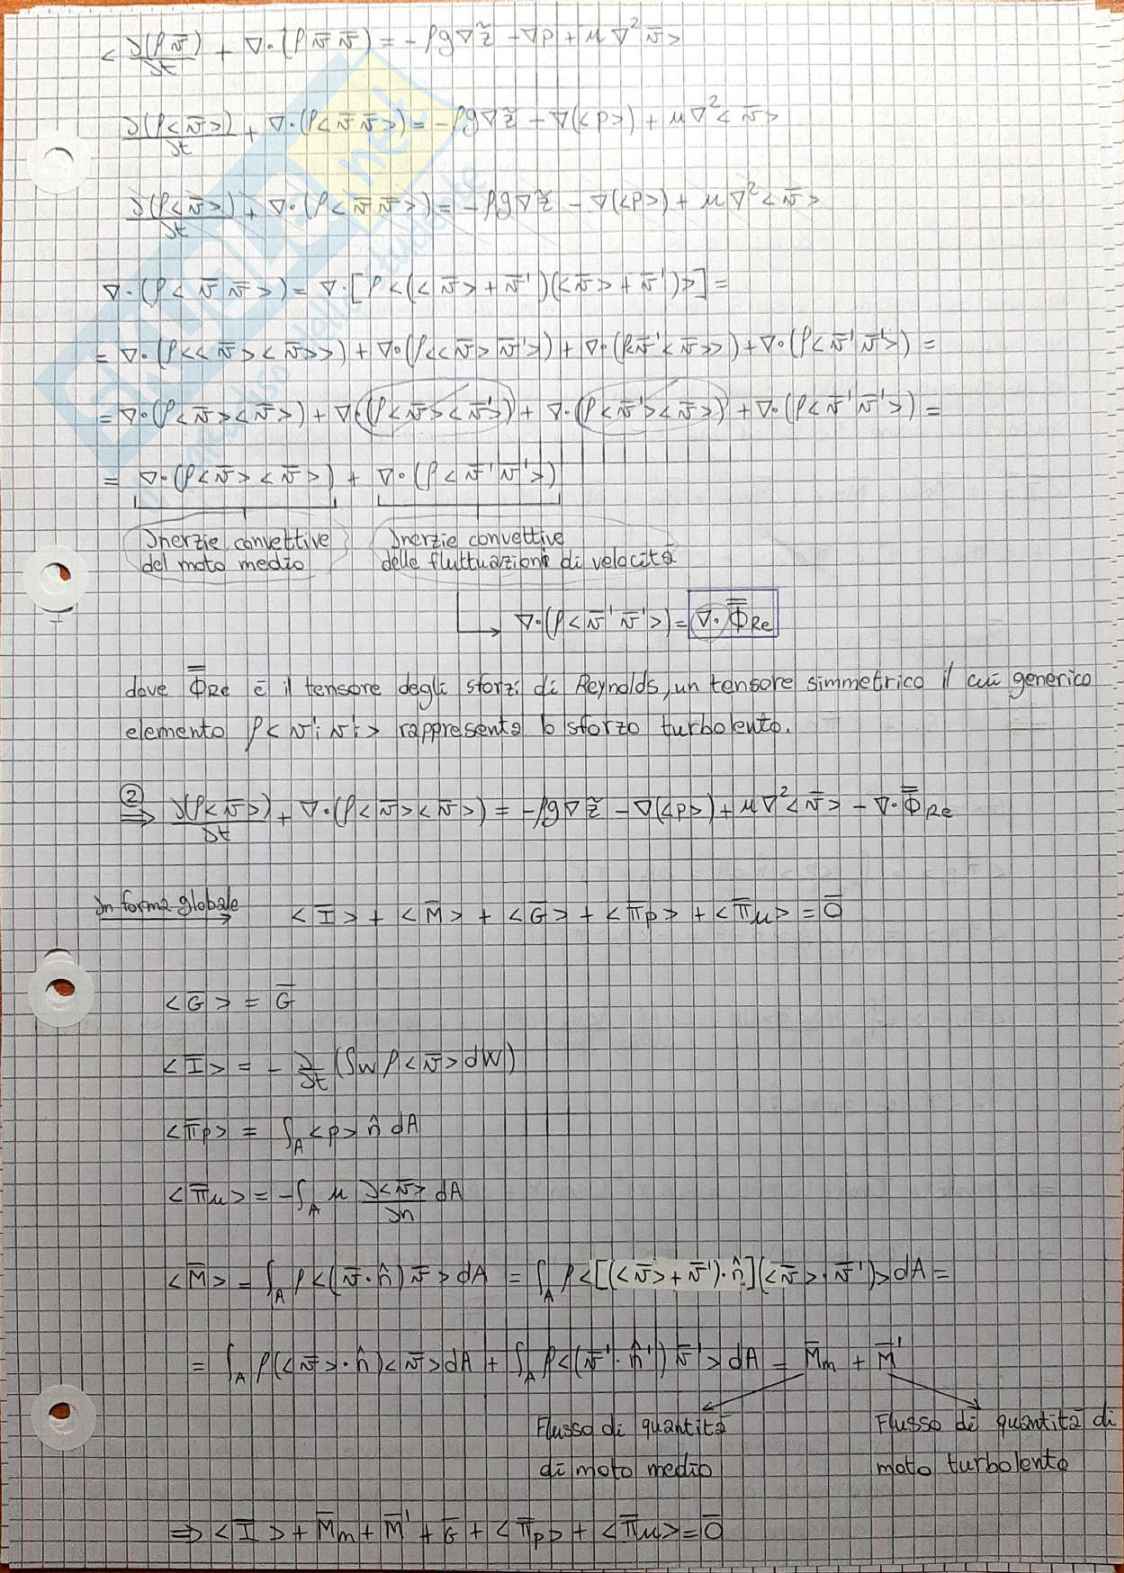 < ∂(ρv̄)/∂t + ∇·(ρ v̄ v̄) = -ρg∇z̃ - ∇p + μ∇²v̄ >
∂(ρ<v̄>)/∂t + ∇·(ρ<v̄ v̄>) = -ρg∇z̃ - ∇(<p>) + μ∇²<v̄>
∂(ρ<v̄>)/∂t + ∇·(ρ<v̄ v̄>) = -ρg∇z̃ - ∇(<p>) + μ∇²<v̄>
∇·(ρ<v̄ v̄>) = ∇·[ρ<(<v̄>+v̄')(<v̄>+v̄')>] =
= ∇·(ρ<<v̄><v̄>>) + ∇·(ρ<<v̄>v̄'>) + ∇·(ρ<v̄'<v̄>>) + ∇·(ρ<v̄'v̄'>) =
= ∇·(ρ<v̄><v̄>) + ∇·(ρ<v̄><v̄'>) + ∇·(ρ<v̄'><v̄>) + ∇·(ρ<v̄'v̄'>) =
= ∇·(ρ<v̄><v̄>) + ∇·(ρ<v̄'v̄'>)
Inerzie convettive del moto medio
Inerzie convettive delle fluttuazioni di velocità
∇·(ρ<v̄'v̄'>) = ∇·Φ̿Re
dove Φ̿Re è il tensore degli sforzi di Reynolds, un tensore simmetrico il cui generico
elemento ρ<v'i v'i> rappresenta lo sforzo turbolento.
② ⇒ ∂(ρ<v̄>)/∂t + ∇·(ρ<v̄><v̄>) = -ρg∇z̃ - ∇(<p>) + μ∇²<v̄> - ∇·Φ̿Re
In forma globale → <Ī> + <M̄> + <Ḡ> + <π̄p> + <π̄μ> = 0̄
<Ḡ> = Ḡ
<Ī> = - ∂/∂t (∫W ρ<v̄>dW)
<π̄p> = ∫A <p> n̂ dA
<π̄μ> = -∫A μ ∂<v̄>/∂n dA
<M̄> = ∫A ρ<(v̄·n̂)v̄>dA = ∫A ρ<[(<v̄>+v̄')·n̂](<v̄>·v̄')>dA =
= ∫A ρ(<v̄>·n̂)<v̄>dA + ∫A ρ<(v̄'·n̂')v̄'>dA = M̄m + M̄'
Flusso di quantità
di moto medio
Flusso di quantità di
moto turbolento
⇒ <Ī> + M̄m + M̄' + Ḡ + <π̄p> + <π̄μ> = 0̄